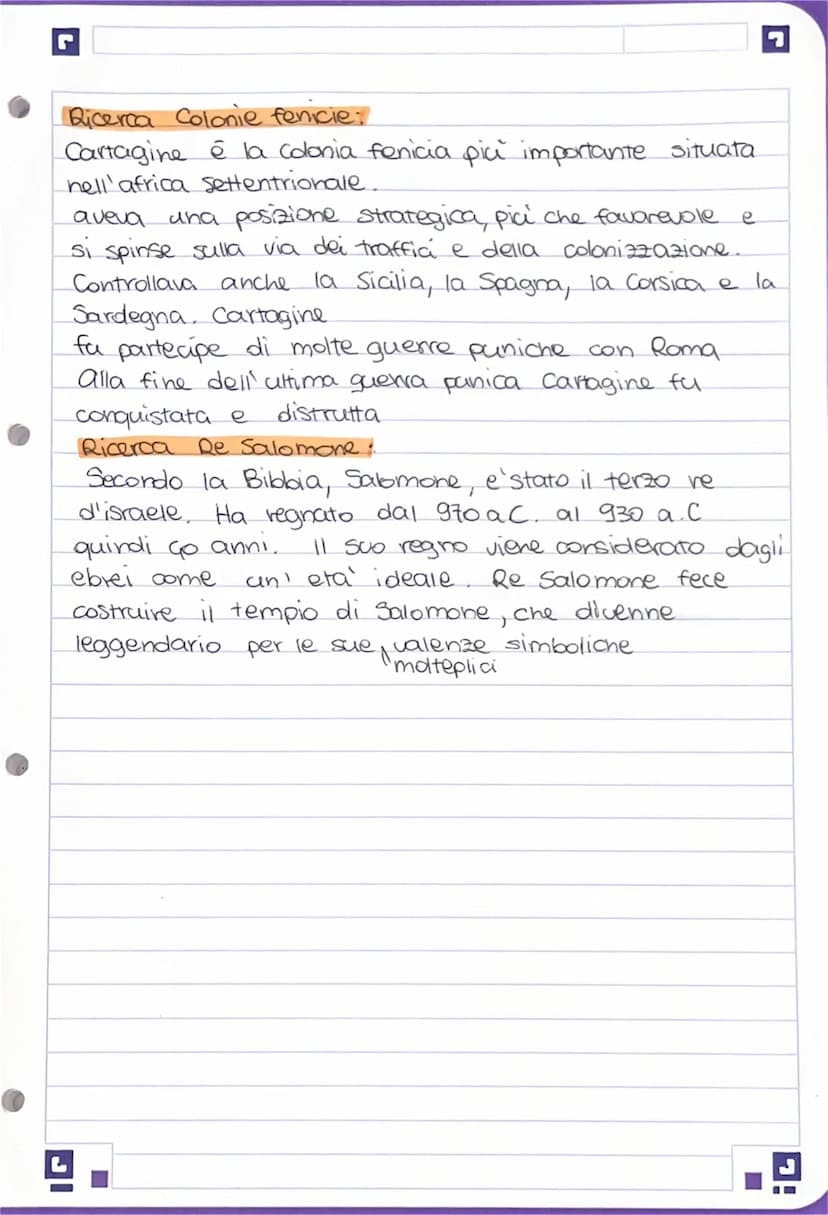 Ricerca Colonie fenicie:
Cartagine è la colonia fenicia più importante situata
nell'africa settentrionale.
aveva una posizione strategica, più che favorevole e
si spinse sulla via dei traffici e della colonizzazione.
Controllava anche la Sicilia, la Spagna, la Corsica e la
Sardegna. Cartagine
fu partecipe di molte guerre puniche con Roma
Alla fine dell'ultima guerra punica Cartagine fu
conquistata e distrutta
Ricerca Re Salomone:
Secondo la Bibbia, Salomone, e' stato il terzo re
d'israele. Ha regnato dal 970 a.C. al 930 a.C
quindi 40 anni. Il suo regno viene considerato dagli
ebrei come un' età ideale. Re Salomone fece
costruire il tempio di Salomone, che divenne
leggendario per le sue valenze simboliche
molteplici